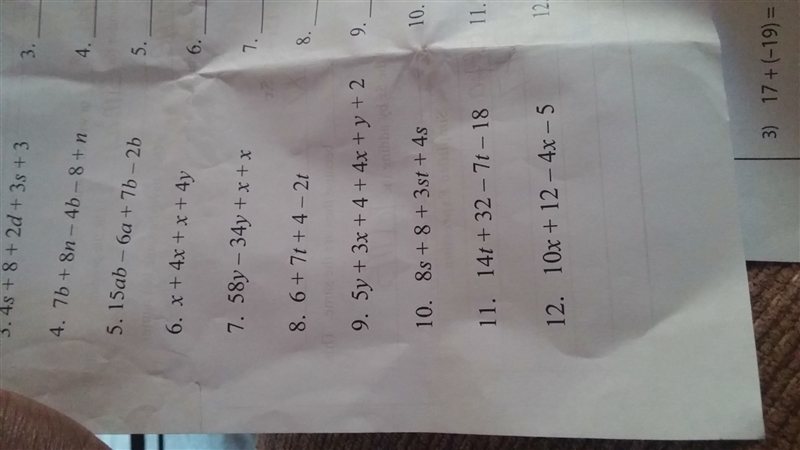 3. 4s + 8 + 2d + 3s + 3
4. 7b + 8n – 4b – 8 + n
5. 15ab – 6a + 7b – 2b
6. x + 4x + x + 4y
7. 58y – 34y + x + x
8. 6 + 7t + 4 – 2t
9. 5y + 3x + 4 + 4x + y + 2
10. 8s + 8 + 3st + 4s
11. 14t + 32 – 7t – 18
12. 10x + 12 – 4x – 5
3.
4.
5.
6.
7.
8.
9.
10.
11.
12.
3) 17 + (–19) =